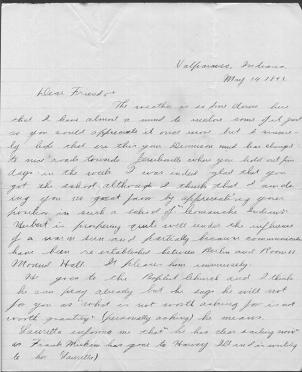 Valparaiso, Indiana
May 14, 189
Dear Friend:
The weather is so fine down here
that I have almost a mind to some of it just
so you could appreciate it once more but I
that this your must has changed
to towards when you hold out five
days in the week. I was indeed glad that you
got the school although I think that I am do
ing you no great favor by appreciating your
position in such a school of "Comanche Indians"
Herbert is prospering quite well under the influence
of a warm sun and partially because communication
have been re-established between Berlin and
Hall. It pleases him immensely.
He goes to the Baptist Church and I think
he can pray already but he says he will not
for you as what is not worth asking for is not
worth granting (personally asking) he means.
Lauretta informs me that he has clear sailing now
as Frank has gone to Harvey Ill and is writing
to her (Lauretta)